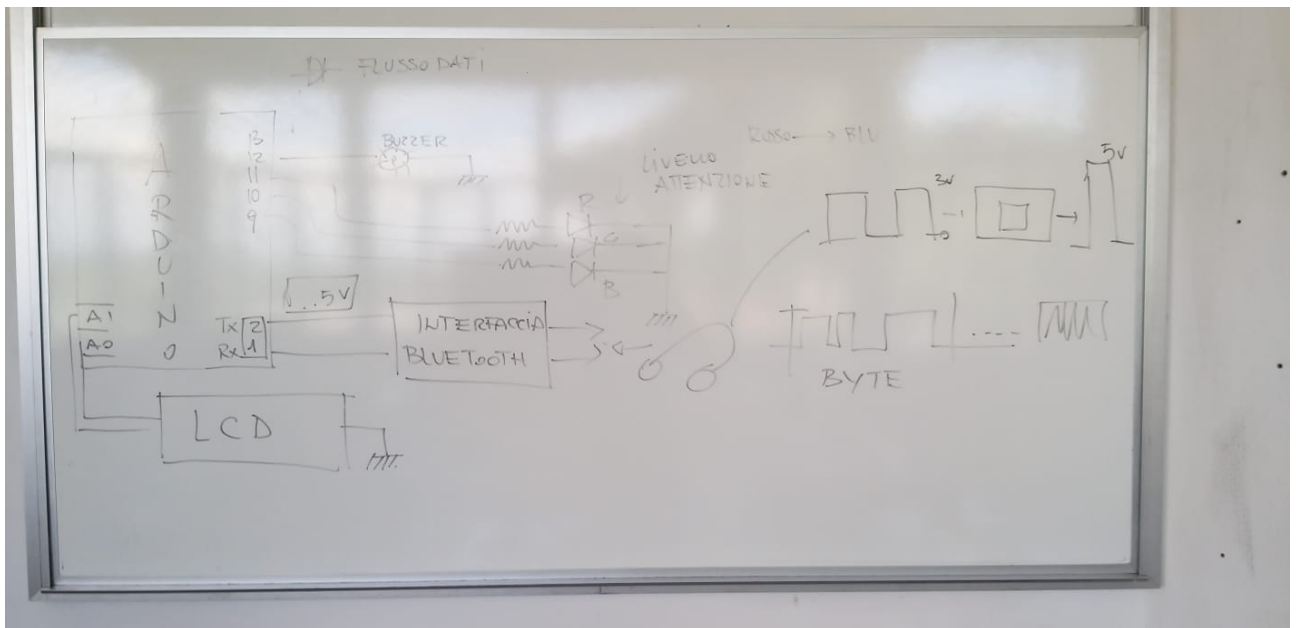 FLUSSO DATI
ARDUINO
13
12
11
10
9
BUZZER
LIVELLO
ATTENZIONE
R
G
B
3V
0
5V
...5V
A1
A0
Tx 2
Rx 1
INTERFACCIA
BLUETOOTH
BYTE
....
LCD